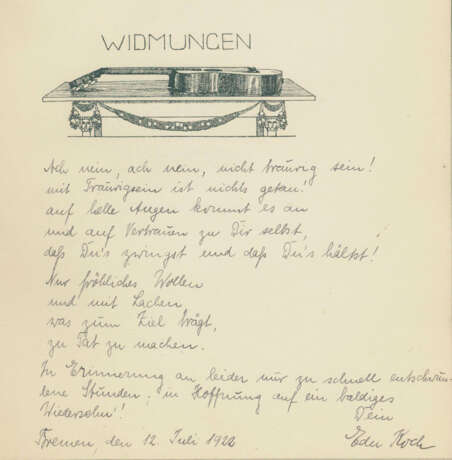 WIDMUNGEN
Ach nein, ach nein, nicht traurig sein!
mit Traurigsein ist nichts getan!
auf helle Augen kommt es an
und auf Vertrauen zu Dir selbst,
daß Du's zwingst und daß Du's hältst!
Nur fröhliches Wollen
und mit Lachen
was zum Ziel trägt,
zu Tat zu machen.
In Erinnerung an leider nur zu schnell entschwun-
dene Stunden; in Hoffnung auf ein baldiges
Wiedersehn!
Dein
Bremen, den 12. Juli 192
Koch